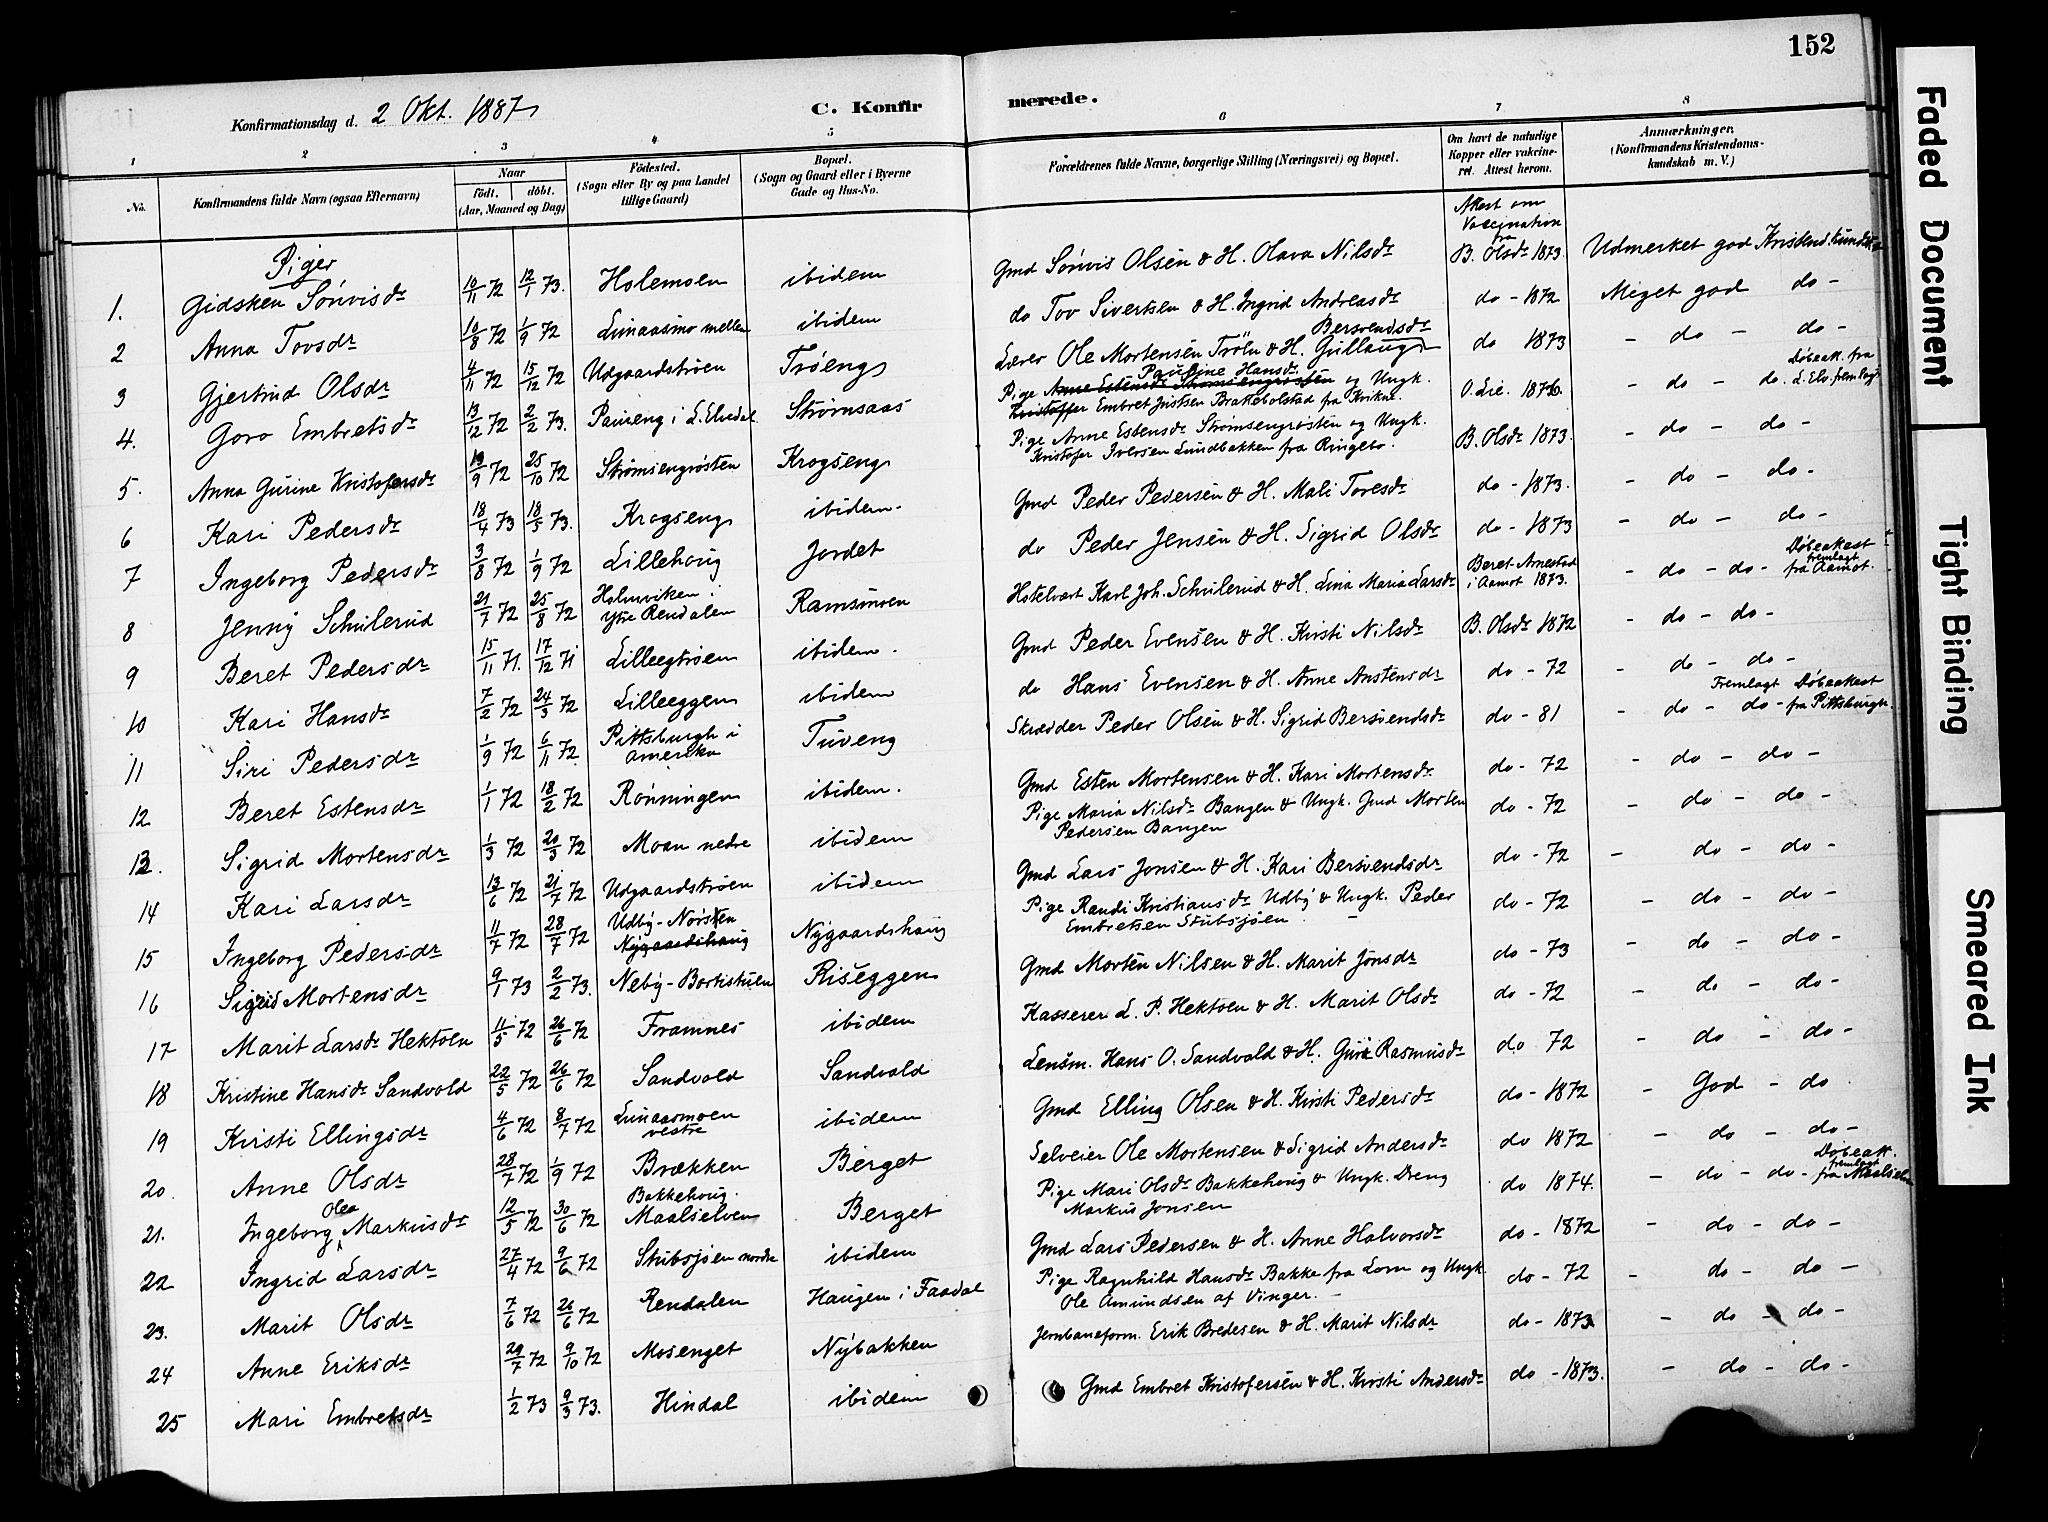 152
Faded Document
Tight Binding
Smeared Ink
Konfirmationsdag d. 2 Okt. 1887
C. Konfirmerede.
1 2 3 4 5 6 7 8
No. Konfirmandens fulde Navn (ogsaa Efternavn) Naar født. døbt. (Aar, Maaned og Dag) Fødested. (Sogn eller By og paa Landet tillige Gaard) Bopæl. (Sogn og Gaard eller i Byerne Gade og Hus-No. Forældrenes fulde Navne, borgerlige Stilling (Næringsvei) og Bopæl. Om havt de naturlige Kopper eller vakcineret. Attest herom. Anmærkninger. (Konfirmandens Kristendomskundskab m. V.)
Piger
Attest om Vaccination fra
1. Gidsken Sønvisdr 10/11 72 12/1 73. Holemoen ibidem Gmd Sønvis Olsen & H. Olava Nilsdr B. Olsdr 1873 Udmerket god Kristend.kundsk
2 Anna Tovsdr 10/8 72 1/9 72 Lunaasmo mellem ibidem do Tov Sivertsen & H. Ingrid Andreasdr do - 1872 Meget god do -
3 Gjertrud Olsdr 4/11 72 15/12 72 Udgaardstrøen Trøeng Lærer Ole Mortensen Trøen & H. Gullaug Bersvendsdr do 1873 - do - do -
4. Goro Embretsdr 13/12 72 2/2 73. Paureng i L. Elvedal Strømsaas Pige Anne Estensdr Strømsengrøsten Pauline Hansdr og Ungk. Kristoffer Embret Justsen Brakebolstad fra Kvikne. O. Lie. 1876. - do - do. Døbeatt. fra L. Elv. fremlagt
5. Anna Gurine Kristofersdr 19/9 72 25/10 72 Strømsengrøsten Krogseng Pige Anne Estensdr Strømsengrøsten og Ungk. Kristofer Iversen Lundbakken fra Ringebo. B. Olsdr 1873. - do - do -
6 Kari Pedersdr 18/4 73 18/5 73. Krogseng ibidem. Gmd Peder Pedersen & H. Mali Toresdr do - 1873. - do - do -
7 Ingeborg Pedersdr 3/8 72 1/9 72 Lillehoug Jordet do Peder Jensen & H. Sigrid Olsdr do - 1873 - do - do -
8 Jenny Schulerud 21/7 72 25/8 72 Holmviken i Ytre Rendalen Ramsmoen Hotelvært Karl Joh. Schulerud & H. Lina Maria Larsdr Beret Arnestad i Aamot 1873. - do - do - Døbeattest fremlagt fra Aamot.
9 Beret Pedersdr 15/11 71. 17/12 71 Lilleegtrøen ibidem. Gmd Peder Evensen & H. Kirsti Nilsdr B. Olsdr 1872 - do - do -
10 Kari Hansdr 7/2 72 24/3 72 Lilleeggen ibidem do Hans Evensen & H. Anne Anstensdr do - 72 - do - do -
11 Siri Pedersdr 1/9 72 6/11 72. Pittsburgh i Amerika Tuveng Skrædder Peder Olsen & H. Sigrid Bersvendsdr do - 81 - do - do - Fremlagt Døbeattest fra Pittsburgh.
12 Beret Estensdr 1/1 72 18/2 72 Rønningen ibidem. Gmd Esten Mortensen & H. Kari Mortensdr do - 72 - do - do -
13. Sigrid Mortensdr 1/3 72 20/3 72 Moan nedre ibidem Pige Maria Nilsdr Bangen & Ungk. Gmd Morten Pedersen Bangen do - 72 - do - do -
14 Kari Larsdr 13/6 72 21/7 72 Udgaardstrøen ibidem Gmd Lars Jonsen & H. Kari Bersvendsdr do - 72 - do - do -
15 Ingeborg Pedersdr 11/7 72 28/7 72 Udby-Norsten Nygaardshaug Nygaardshaug Pige Randi Kristiansdr Udby & Ungk. Peder Embretsen Stubsjøen do - 72 - do - do -
16 Sigrid Mortensdr 9/1 73 2/2 73. Neby-Bortistuen Riseggen Gmd Morten Nilsen & H. Marit Jonsdr do - 73 - do - do -
17 Marit Larsdr Hektoen 11/5 72 26/6 72 Framnes ibidem Kasserer L. P. Hektoen & H. Marit Olsdr do - 72 - do - do -
18 Kristine Hansdr Sandvold 22/5 72 26/6 72 Sandvold Sandvold Lensm. Hans O. Sandvold & H. Guri Rasmusdr do 72 - do - do -
19 Kirsti Ellingsdr 4/6 72 8/7 72 Lunaasmoen vestre ibidem Gmd Elling Olsen & H. Kirsti Pedersdr do - 1872 - God - do
20. Anne Olsdr 28/7 72 1/9 72 Brækken Berget Selveier Ole Mortensen & Sigrid Andersdr do 1872 - do - do -
21. Ingeborg Olea Markusdr 12/5 72 30/6 72 Bakkehoug. Maalselven Berget Pige Mari Olsdr Bakkehoug & Ungk. Dreng Markus Jonsen do 1874. - do - do - Døbeatt. fremlagt fra Maalselven
22 Ingrid Larsdr 27/4 72 9/6 72 Stubsjøen nordre ibidem Gmd Lars Pedersen & H. Anne Halvorsdr do - 1872 - do - do -
23. Marit Olsdr 7/6 72 26/6 72 Rendalen Haugen i Faadal Pige Ragnhild Hansdr Bakke fra Lom og Ungk Ole Amundsen af Vinger. do - 72 - do - do -
24 Anne Eriksdr 29/7 72 9/10 72 Mosenget Nybakken Jernbaneform. Erik Bredesen & H. Marit Nilsdr do - 1873 - do - do -
25 Mari Embretsdr 1/2 73 9/3 73. Hindal ibidem Gmd Embret Kristofersen & H. Kirsti Andersdr do - 1873. - do - do -